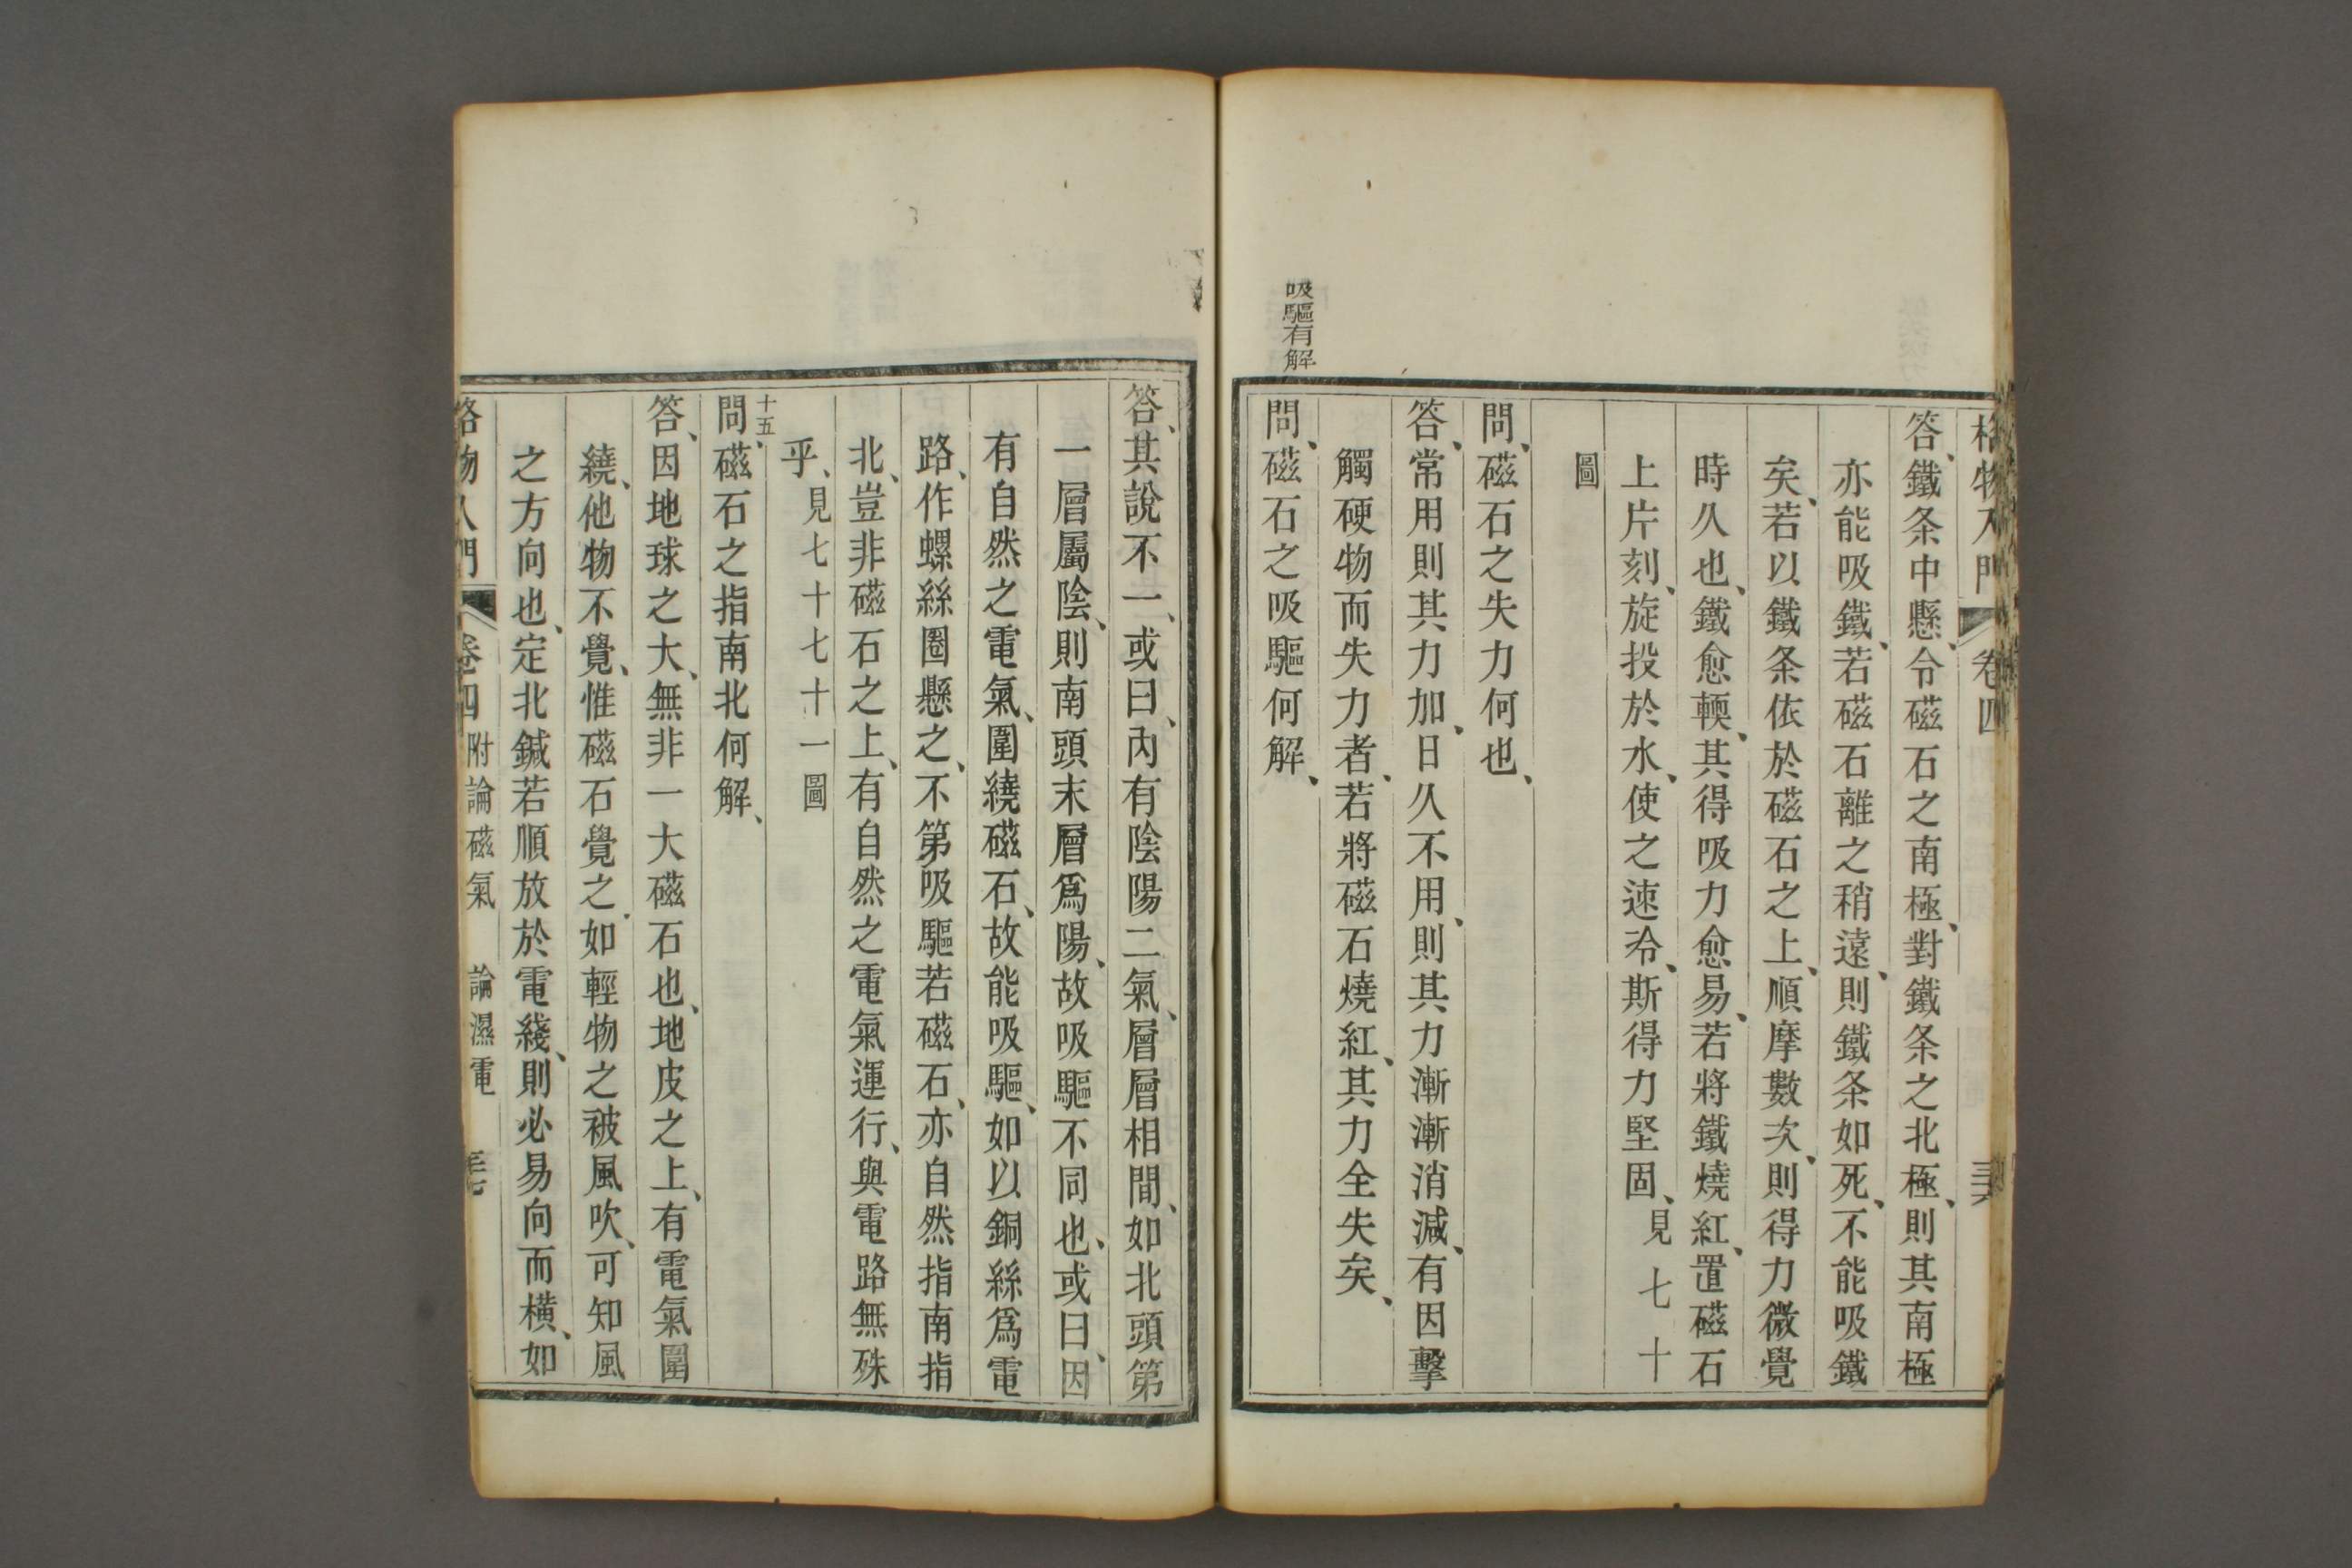 格物入門 卷四 三六
答、鐵条中懸、令磁石之南極、對鐵条之北極、則其南極
亦能吸鐵、若磁石離之稍遠、則鐵条如死、不能吸鐵
矣、若以鐵条依於磁石之上、順摩數次、則得力微覺
時久也、鐵愈輭、其得吸力愈易、若將鐵燒紅、置磁石
上片刻、旋投於水、使之速冷、斯得力堅固、見七十
圖
問、磁石之失力何也、
答、常用則其力加、日久不用、則其力漸漸消減、有因擊
觸硬物而失力者、若將磁石燒紅、其力全失矣、
吸驅有解
問、磁石之吸驅何解、
答、其說不一、或曰、內有陰陽二氣、層層相間、如北頭第
一層屬陰、則南頭末層爲陽、故吸驅不同也、或曰、因
有自然之電氣、圍繞磁石、故能吸驅、如以銅絲爲電
路、作螺絲圈懸之、不第吸驅若磁石、亦自然指南指
北、豈非磁石之上、有自然之電氣運行、與電路無殊
乎、見七十七十一圖
十五
問、磁石之指南北何解、
答、因地球之大、無非一大磁石也、地皮之上、有電氣圍
繞、他物不覺、惟磁石覺之、如輕物之被風吹、可知風
之方向也、定北鍼若順放於電綫、則必易向而橫、如
格物入門 卷四 附論磁氣 論濕電 三七